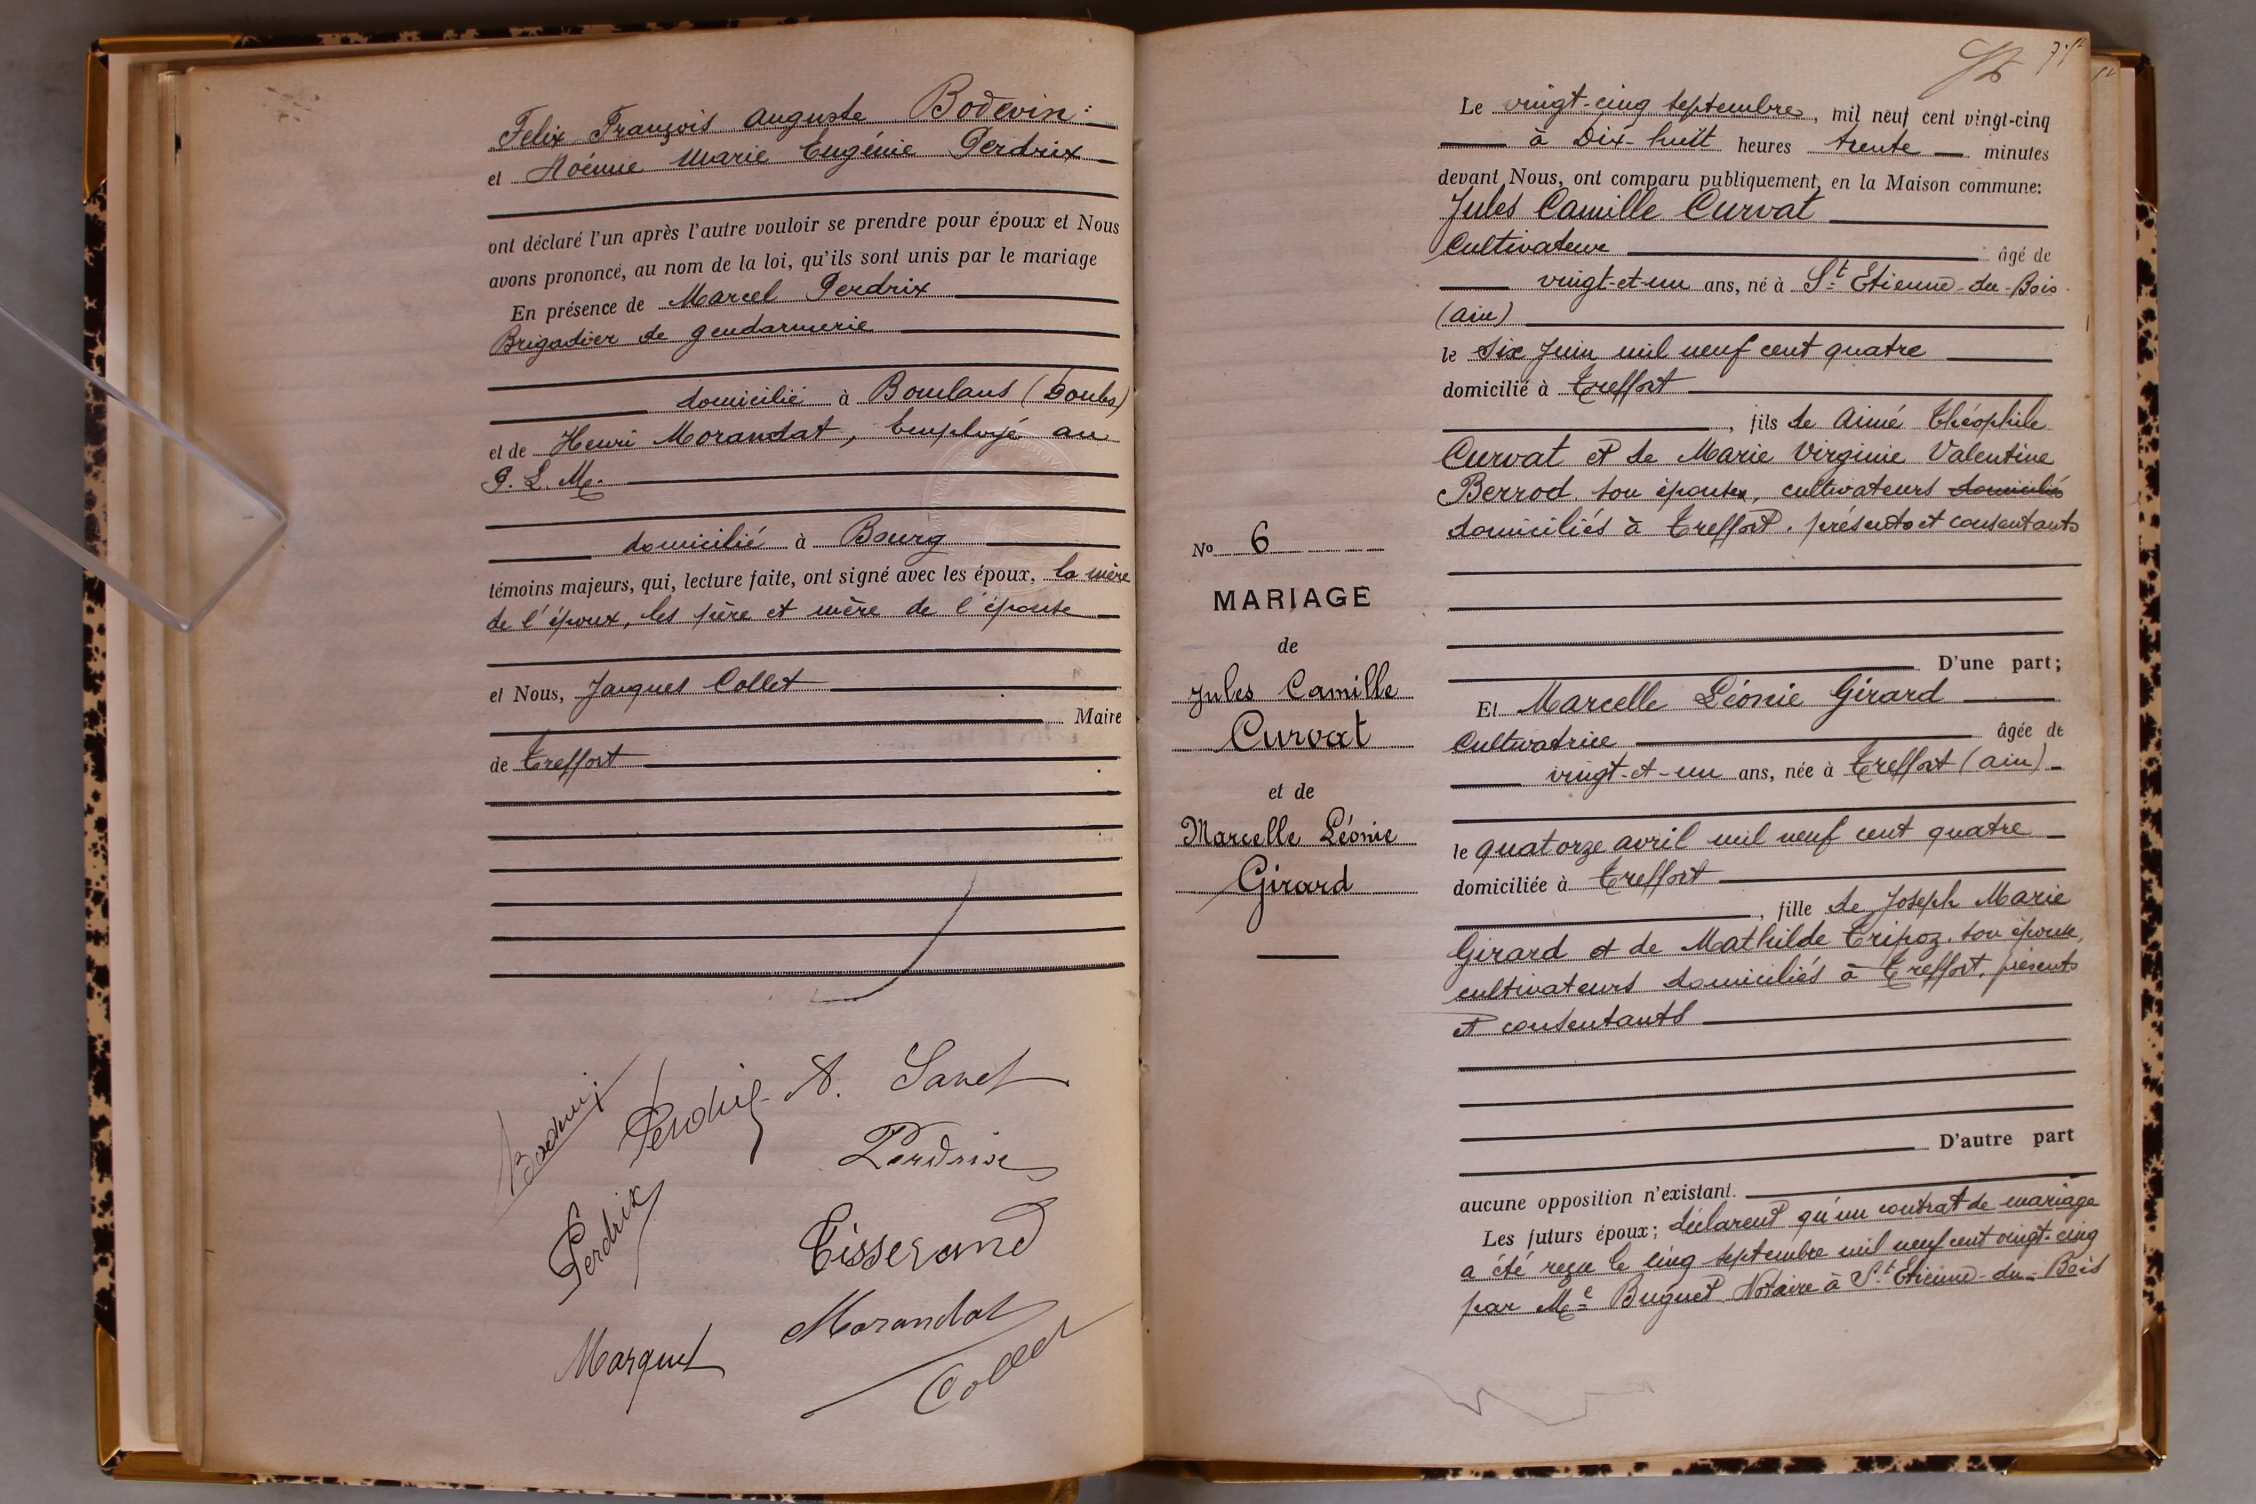 Felix François Auguste Bodevin
et Noémie Marie Eugénie Perdrix
ont déclaré l'un après l'autre vouloir se prendre pour époux et Nous
avons prononcé, au nom de la loi, qu'ils sont unis par le mariage
En présence de Marcel Perdrix
Brigadier de gendarmerie
domicilié à Bouclans (Doubs)
et de Henri Morandat, Employé au
P. L. M.
domicilié à Bourg
témoins majeurs, qui, lecture faite, ont signé avec les époux, la mère
de l'époux, les père et mère de l'épouse
et Nous, Jacques Collet
Maire
de Treffort
Bodevin
Perdrix
Perdrix
Perdrix
Tisserand
Morandat
Marquet
Collet
Le vingt-cinq septembre, mil neuf cent vingt-cinq
à Dix-huit heures trente minutes
devant Nous, ont comparu publiquement, en la Maison commune:
Jules Camille Curvat
Cultivateur âgé de
vingt-et-un ans, né à St Etienne-du-Bois
(Ain)
le Six Juin mil neuf cent quatre
domicilié à Treffort
, fils de Aimé Théophile
Curvat et de Marie Virginie Valentine
Berrod son épouse, cultivateurs domiciliés
domiciliés à Treffort. présents et consentants
D'une part;
Et Marcelle Léonie Girard
Cultivatrice âgée de
vingt-et-un ans, née à Treffort (Ain)
le quatorze avril mil neuf cent quatre
domiciliée à Treffort
, fille de Joseph Marie
Girard et de Mathilde Tripoz. son épouse,
cultivateurs domiciliés à Treffort, présents
et consentants
D'autre part
aucune opposition n'existant.
Les futurs époux; déclarent qu'un contrat de mariage
a été reçu le cinq septembre mil neuf cent vingt-cinq
par Me Buguet Notaire à St Etienne-du-Bois
No 6
MARIAGE
de
Jules Camille
Curvat
et de
Marcelle Léonie
Girard